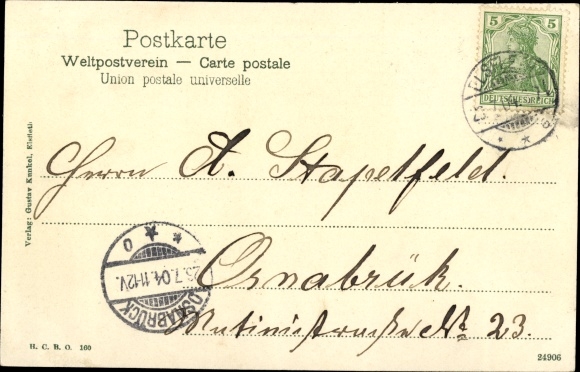 Postkarte
Weltpostverein — Carte postale
Union postale universelle
5 5
DEUTSCHES REICH
Herrn A. Stapelfeld.
Osnabrück.
№ 23.
OSNABRÜCK
23.7.04.11-12V.
Verlag: Gustav Kunkel, Elsfleth
H. C. B. O. 160
24906